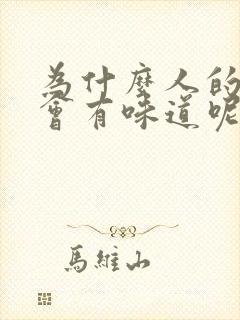 為什麼人的
會有味道呢
馬維山